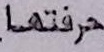 حرفتها